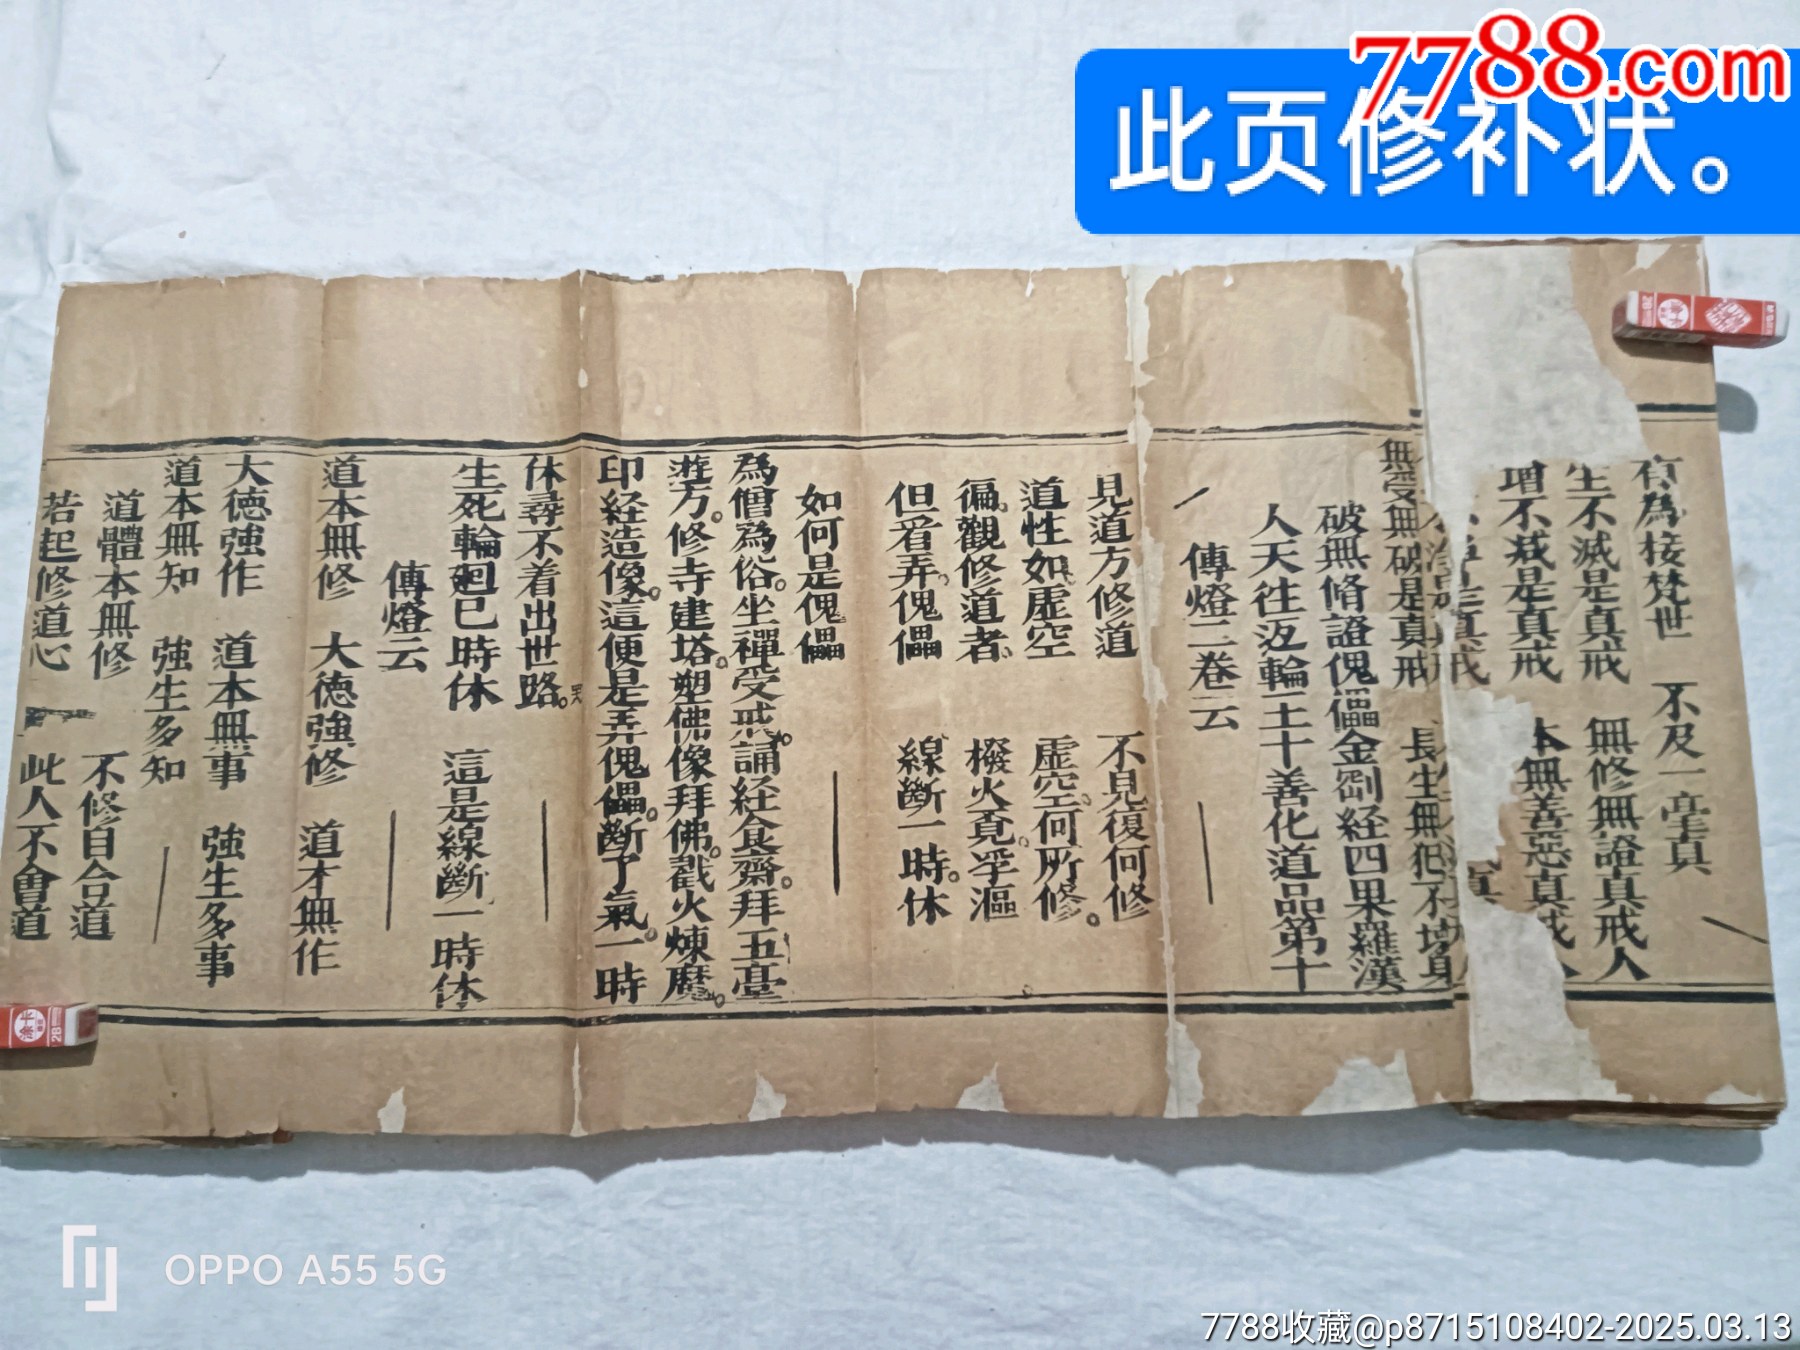 7788.com
此页修补状。
有為接梵世　不及一毫真
生不滅是真戒　無修無證真戒人
增不減是真戒　本無善惡真戒
是真戒
無受無破是真戒　長生無犯不壞身
破無脩證傀儡金剛経四果羅漢
人天往返輪王十善化道品第十
傳燈二卷云
見道方修道　不見復何修
道性如虛空　虛空何所修
徧觀修道者　撥火覓浮漚
但看弄傀儡　線斷一時休
如何是傀儡
為僧為俗坐禪受戒誦経食齋拜五臺
遊方修寺建塔塑佛像拜佛戳火煉魔
印経造像這便是弄傀儡斷了氣一時
休尋不着出世路
生死輪廻已時休　這是線斷一時休
傳燈云
道本無修　大德強修　道本無作
大德強作　道本無事　強生多事
道本無知　強生多知
道體本無修　不修自合道
若起修道心　此人不會道
OPPO A55 5G
7788收藏@p8715108402-2025.03.13